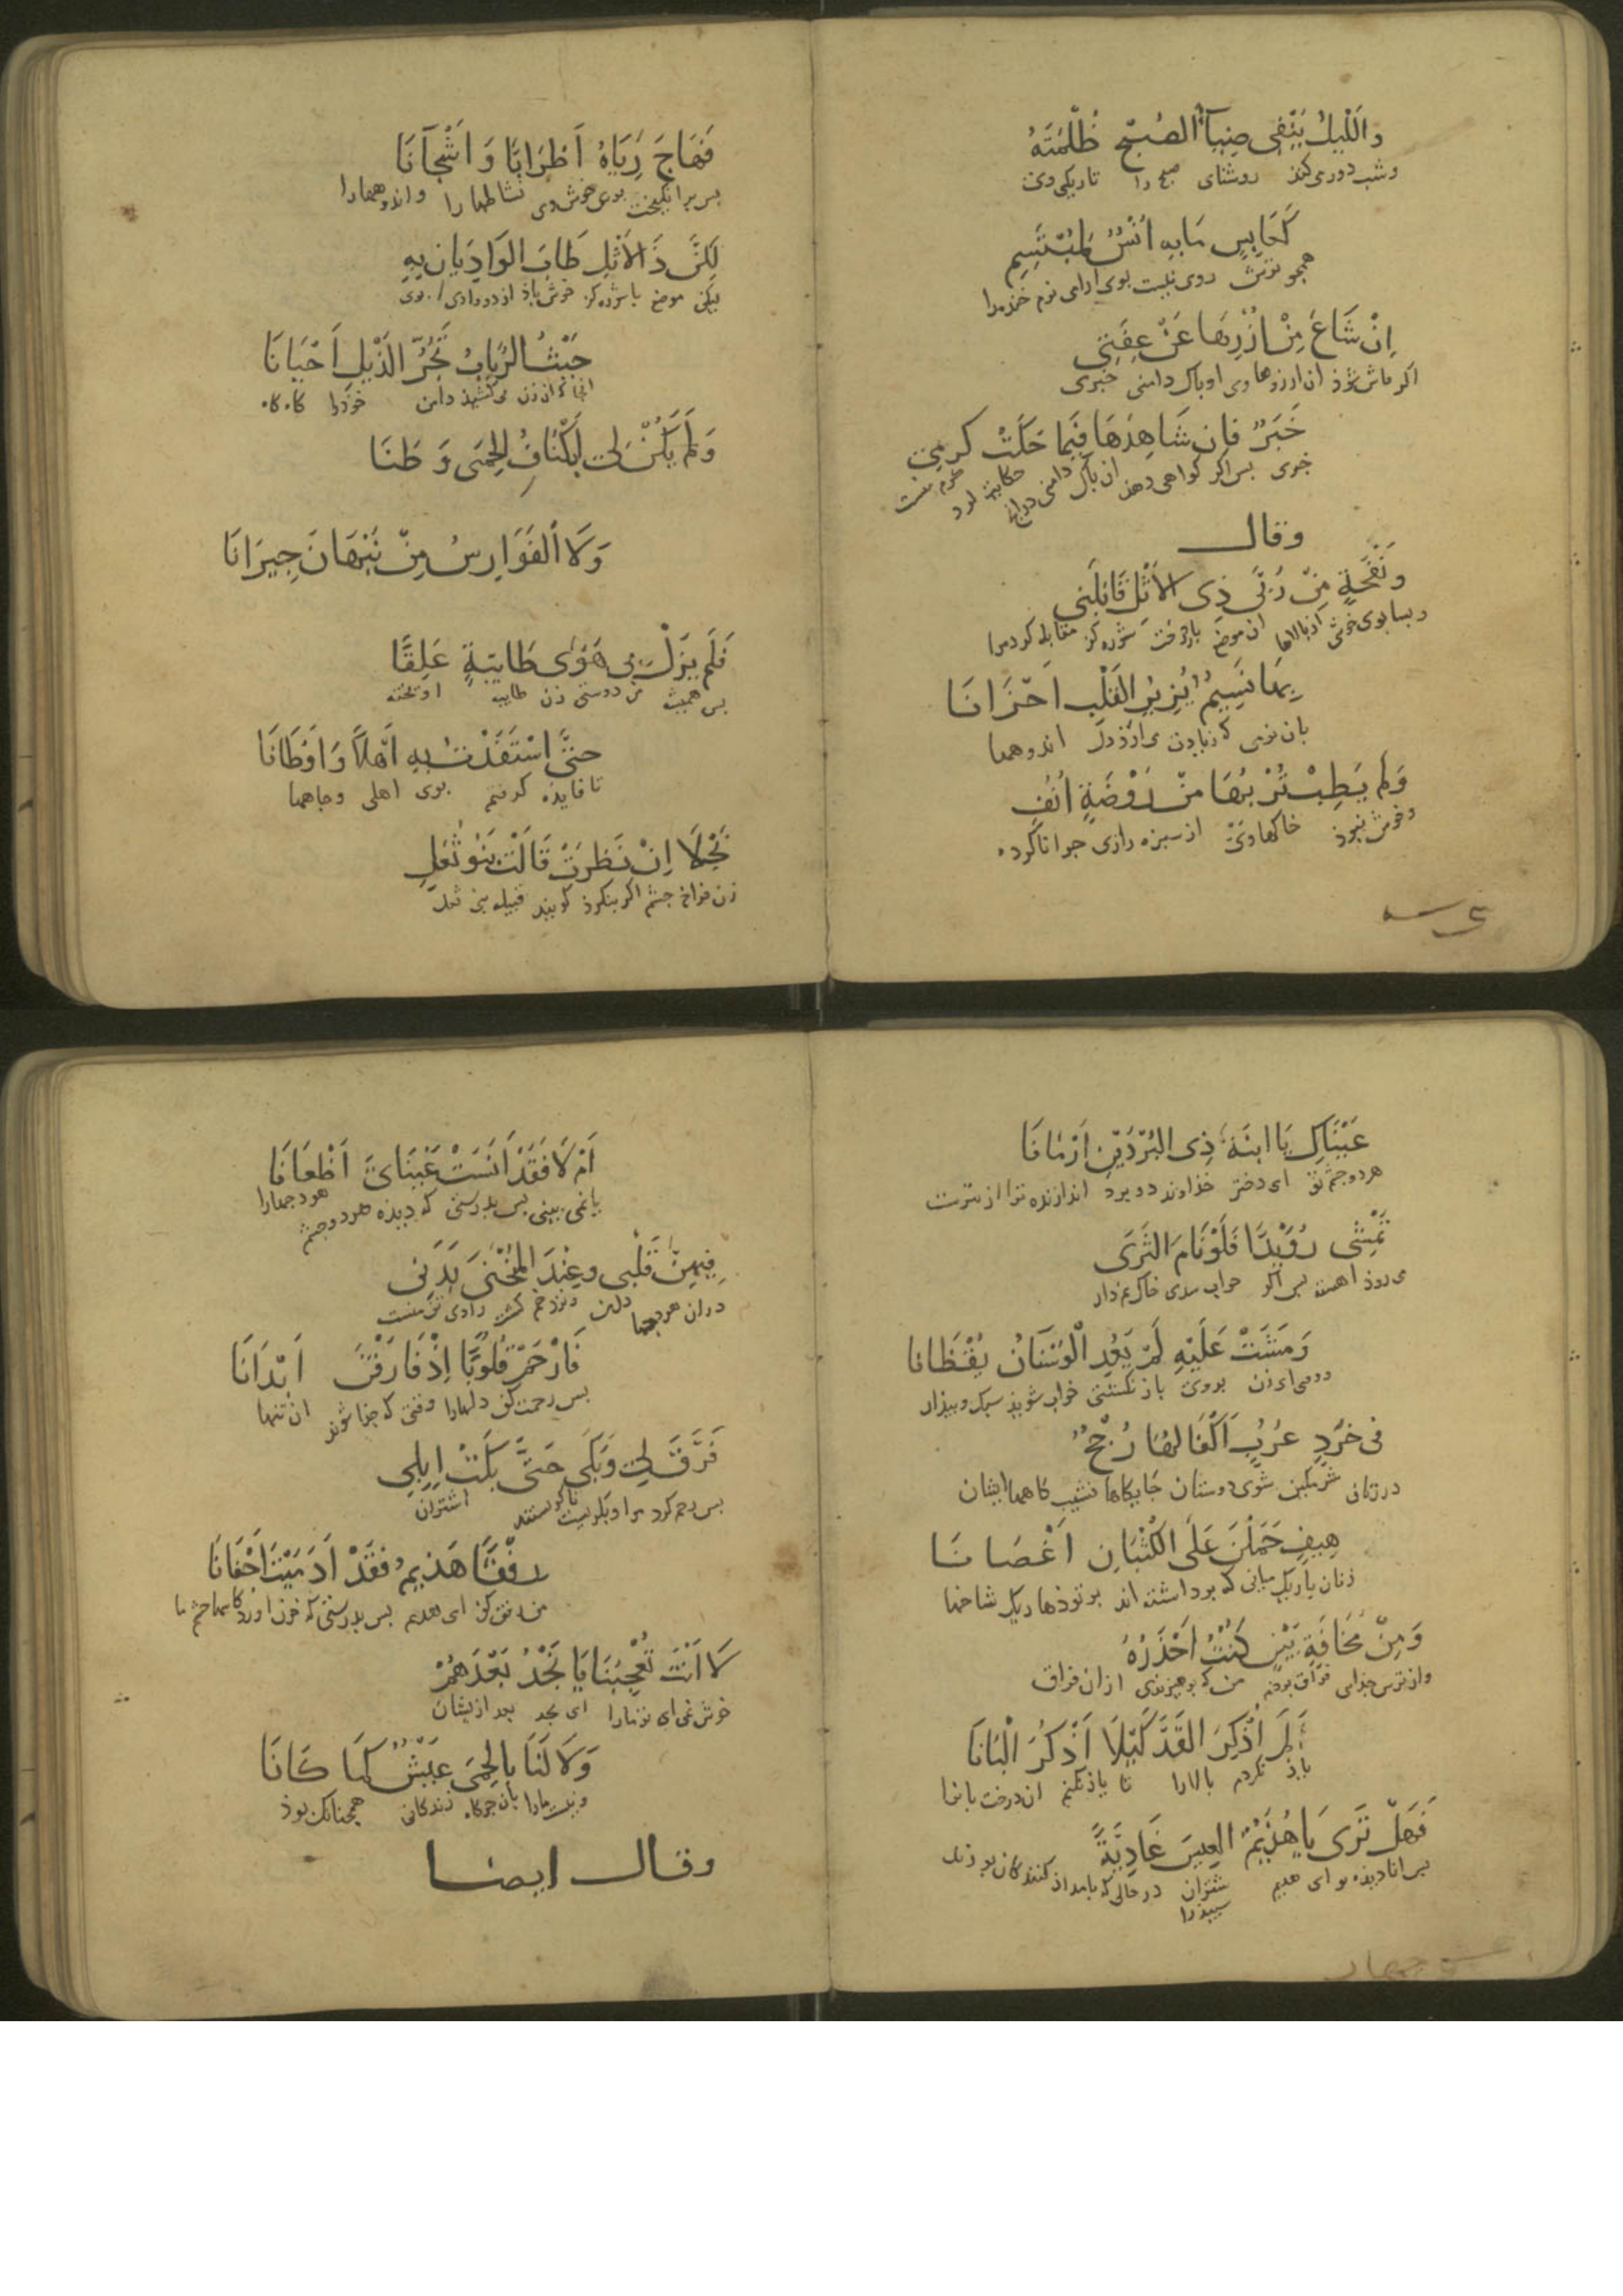 واللّيلُ يَنْفِى ضِيَآءُ الصُبْحِ ظُلْمَتَهُ
وشب دور می‌کند روشنای صبح را تاریکی وی
كَعَابِسٍ مَا بِهِ اُنْسٌ لِمُبْتَسِمِ
همچو ترش روی نیست بوی ارامی نرم خنده را
اِنْ شَاعَ مِنْ اُزْرِهَا عَنْ عِفَّتِى
اکر فاش شوذ از ازارها وی او باک دامنی خبری
خَبَرٌ فَاِن شَاهِدُهَا فِيمَا حَكَتْ كرمِى
خبری بس اکر کواهی دهد ان باک دامنی
وقال
وَنَفْحَةٍ مِنْ رُبَى ذِى الاَثْلِ قَابَلَنِى
وبسا بوی خوش از بالاها ان موضع با درخت شوره کز مقابله کرد مرا
بِهَا نَسِيمٌ يُزِيرُ القَلْبَ اَحْزَانَا
بان نرمی که زیارت می ارذ دل اندوهها
وَلَم يَطِبْ تُرْبُهَا مِنْ رَوْضَةٍ اُنُفٍ
وخوش نبوذ خاکها وی از سبزه زاری جرا ناکرده
فَهَاجَ رَيَّاهُ اَطْرَابًا وَ اَشْجَآنَا
بس برانکیخت بوی خوش وی نشاطها را واندوهها را
لَكِنَّ ذَا الاَثْلِ طَابَ الوَادِيَانِ بِهِ
لیکن موضع با شوره کز خوش باذ از دو وادی بوی
حَيْثُ الرَّبَابُ تَجُرُّ الذَّيْلَ اَحْيَانَا
انجا که ان زن می‌کشیذ دامن خوذ را کاه کاه
وَلَم يَكُنْ لِى اَكْنَافُ الحِمَى وَطَنَا
وَلَا الفَوَارِسُ مِنْ نَبْهَانَ جِيرَانَا
فَلَم يَزَلْ بِى هَوَى طَائِيَّةٍ عَلِقًا
بس همیشه من دوستی زن طاییه اویخته
حتَّى اسْتَفَدْتُ بِهِ اَهْلًا وَ اَوْطَانَا
تا فایده کرفتم بوی اهلی وجاهها
نَجْلَا اِنْ نَظَرَتْ قَالَتْ بَنُو ثُعَلٍ
زن فراخ چشم اکر بنکرذ کویند قبیله بنی ثعل
عَيْنَاكِ يَا ابنَةَ ذِى البُرْدَيْنِ اَرْمَانَا
هر دو چشم تو ای دختر خذاوند دو برد اندازنده ترا از تیرست
تَمْشِى رُوَيْدًا فَلَوْ نَامَ الثَّرَى
می روذ اهسته بس اکر خواب شدی خاک نم دار
وَمَشَتْ عَلَيْهِ لَمْ يَعُدِ الْوَسْنَانُ يَقْظَانَا
ورفتی ان زن بروی باز نکشتی خواب شونده سبک وبیذار
فى خُرَّدٍ عُرُبٍ اَكْفَالُهَا رُجُحٌ
در زنانی شرمکین شوی دوستان
هِيفٍ حَمَلْنَ عَلَى الكُثْبَانِ اَغْصَانَا
زنان باریک میانی که برداشته اند بر توذها ریک شاخها
وَمِنْ مَخَافَةِ بَيْنٍ كُنْتُ اَحْذَرُهُ
واز ترس جذایی من که برهیزیدمی از ان فراق
لَم اَذْكُرِ القَدَّ كَيْلَا اَذْكُرَ الْبَانَا
یاذ نکردم بالا را تا یاذ نکنم ان درخت بان را
فَهَلْ تَرَى يَا هُذَيْمُ العِيسَ غَادِيَةً
بس انا دیذه تو ای هذیم شتران در حالی که بامداذ کنندکان
سبیذ را
اَمْ لَا فَقَدْ اَنَسَتْ عَيْنَاىَ اَظْعَانَا
یا نمی بینی بس بدرستی که دیذه هر دو چشم هودجها را
فِيهِنَّ قَلْبى وعِنْدَ المُنْحَنَى بَدَنِى
دران هودجها دلمن ونزد خم کشته وادی تن منست
فَارْحَمْ قُلُوبًا اِذْ فَارَقْنَ اَبْدَانَا
بس رحمت کن دلها را وقتی که جذا شوند از تنها
فَرَقَّ لِى وَبَكَى حَتَّى بَكَتْ اِبِلِى
بس رحم کرد مرا وبکریست تا بکریستند اشتران
رِفْقًا هُذَيْمُ فَقَدْ اَدْمَيْتَ اَجْفَانَا
ای هذیم بس بدرستی که خون اوردی
لَا اَنْتَ تُعْجِبُنَا يَا نَجْدُ بَعْدَهُمُ
خوش نمی ای تو ما را ای نجد بعد ازیشان
وَلَا لَنَا بِالحِمَى عَيْشٌ كَمَا كَانَا
ونیست ما را بان جرکاه زندکانی همچنانک بوذ
وقال ايضا